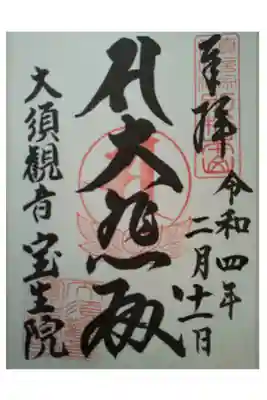 奉拝
令和四年
二月廿一日
大悲殿
大須観音 宝生院